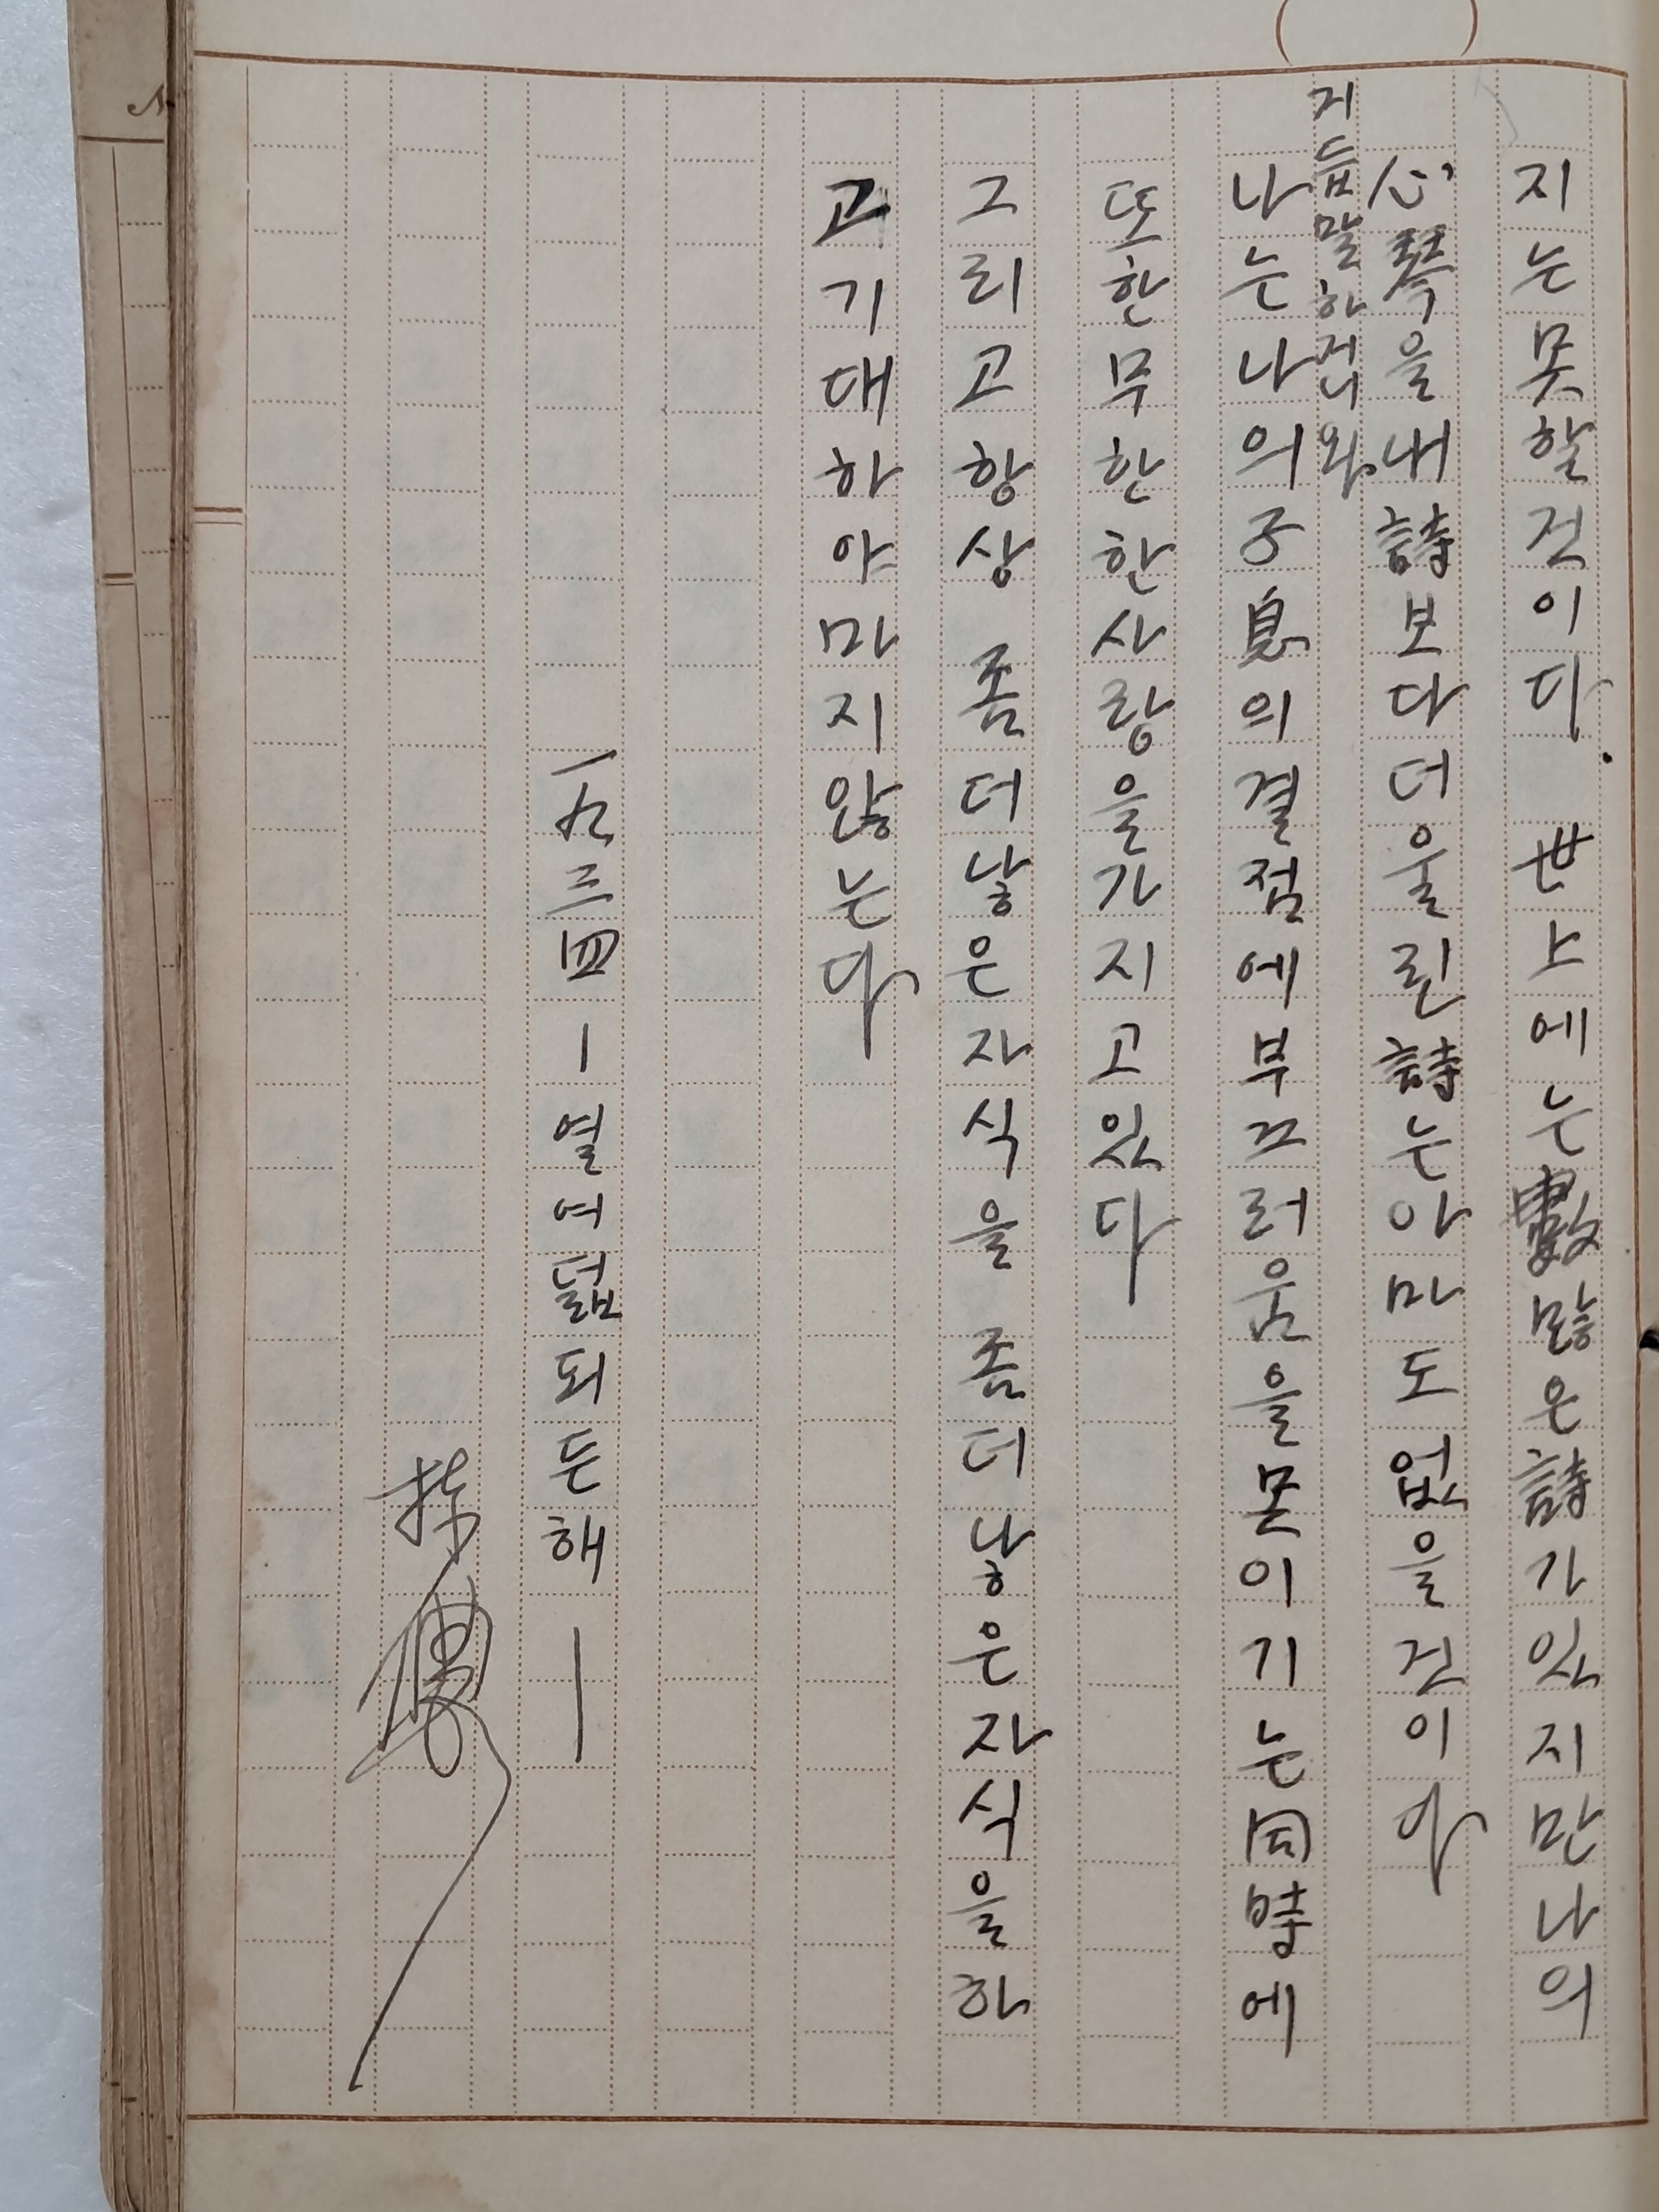 지는못할건이다. 世上에는數많은詩가있지만나의
心琴을내詩보다더울린詩는아마도없을건이다
거듭말하거니와
나는나의子息의결점에부끄러움을몯이기는同時에
또한무한한사랑을가지고있다
그리고항상 좀더낳은자식을 좀더낳은자식을하
고기대하야마지않는다
一九三四ー열여덟되든해ー